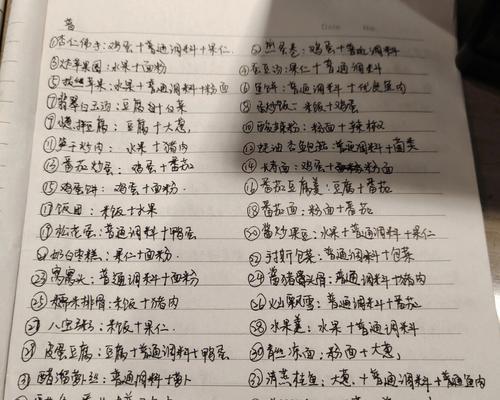 普
Date No.
①杏仁佛手:鸡蛋+普通调料+果仁. ②煎蛋卷:鸡蛋+普通调料
③炸苹果圈:水果+面粉 ④蚕豆沟:果仁+普通调料
⑤拔丝苹果:水果+普通调料+面粉 ⑥鱼饼:普通调料+优良鱼肉
⑦翡翠白玉汤:豆腐+白菜 ⑧蛋炒饭:米饭+鸡蛋
⑨爆拌豆腐:豆腐+大葱, ⑩酸辣粉:粉面+辣椒
⑪果子炒肉:水果+猪肉 普通调料+菌类
⑬番茄炒蛋:鸡蛋+番茄 ⑭烤面:鸡蛋+粉面
⑮鸡蛋饼:鸡蛋+面粉. ⑯番茄豆腐羹:豆腐+番茄
⑰饭团:米饭+水果 ⑱番茄面:粉面+番茄
⑲松花蛋:普通调料+鸭蛋 ⑳酱炒果豆:水果+普通调料+果仁
奶白枣糕:果仁+面粉. 手撕包菜:普通调料+包菜
㉓窝窝头:普通调料+面粉 ㉔酱猪骨:普通调料+猪肉
㉕糯米排骨:米饭+猪肉 ㉖火山飘雪:普通调料+番茄
㉗八宝粥:米饭+果仁. ㉘水果羹:水果+普通调料
皮蛋豆腐:豆腐+普通调料+鸭蛋 ㉚凉面:粉面+大葱,
㉛醋溜萝卜丝:普通调料+萝卜 清蒸桂鱼:大葱,+普通调料+普通鱼肉